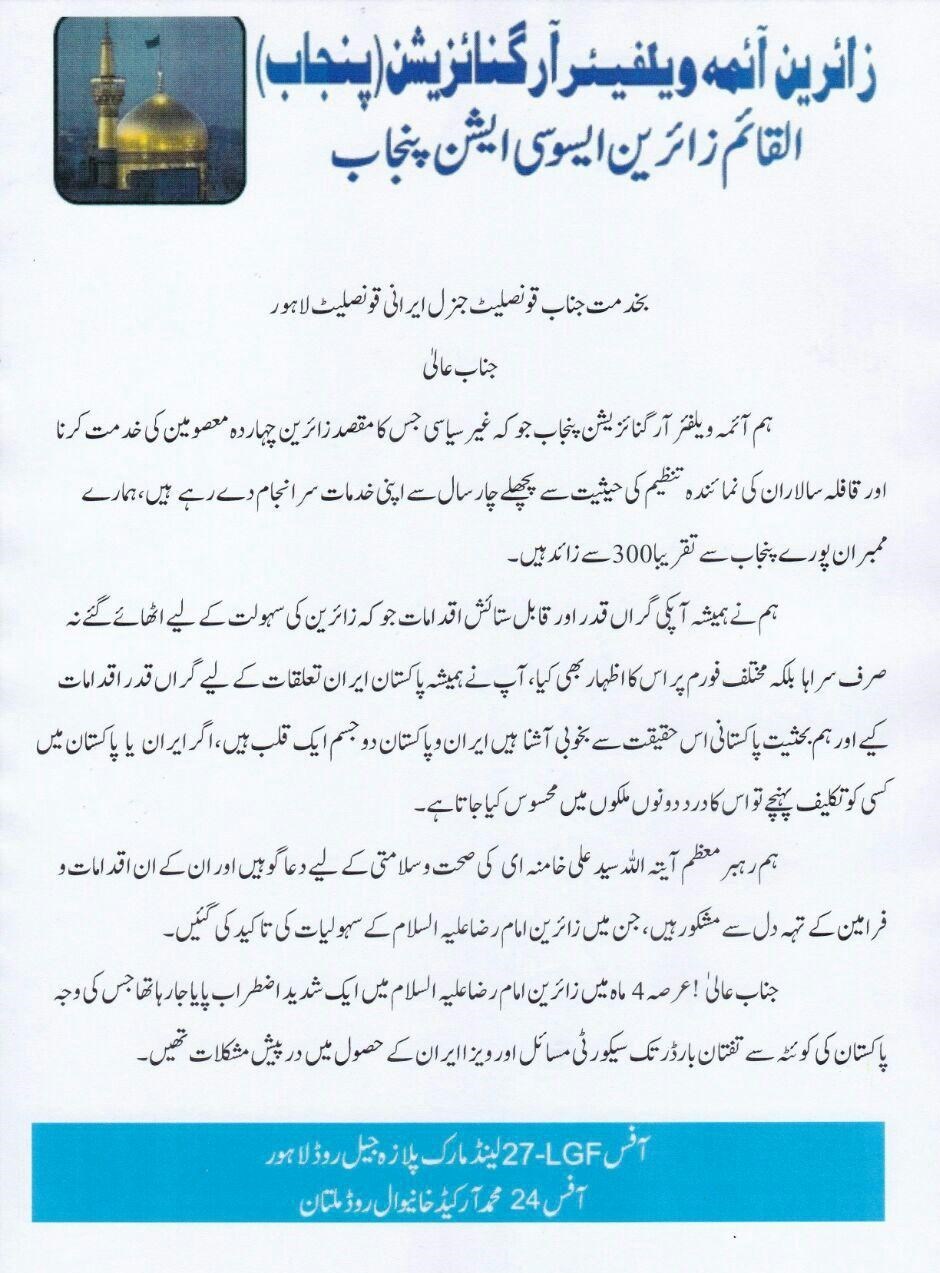 زائرین آئمہ ویلفیئر آرگنائزیشن (پنجاب)
القائم زائرین ایسوسی ایشن پنجاب
بخدمت جناب قونصلیٹ جنرل ایرانی قونصلیٹ لاہور
جناب عالیٰ
ہم آئمہ ویلفئر آرگنائزیشن پنجاب جو کہ غیر سیاسی جس کا مقصد زائرین چہاردہ معصومین کی خدمت کرنا
اور قافلہ سالاران کی نمائندہ تنظیم کی حیثیت سے پچھلے چار سال سے اپنی خدمات سر انجام دے رہے ہیں، ہمارے
ممبران پورے پنجاب سے تقریبا 300 سے زائد ہیں۔
ہم نے ہمیشہ آپکی گراں قدر اور قابل ستائش اقدامات جو کہ زائرین کی سہولت کے لیے اٹھائے گئے نہ
صرف سراہا بلکہ مختلف فورم پر اس کا اظہار بھی کیا، آپ نے ہمیشہ پاکستان ایران تعلقات کے لیے گراں قدر اقدامات
کیے اور ہم بحثیت پاکستانی اس حقیقت سے بخوبی آشنا ہیں ایران و پاکستان دو جسم ایک قلب ہیں، اگر ایران یا پاکستان میں
کسی کو تکلیف پہنچے تو اس کا درد دونوں ملکوں میں محسوس کیا جاتا ہے۔
ہم رہبر معظم آیتہ اللہ سید علی خامنہ ای کی صحت و سلامتی کے لیے دعا گو ہیں اور ان کے ان اقدامات و
فرامین کے تہہ دل سے مشکور ہیں، جن میں زائرین امام رضا علیہ السلام کے سہولیات کی تاکید کی گئیں۔
جناب عالیٰ! عرصہ 4 ماہ میں زائرین امام رضا علیہ السلام میں ایک شدید اضطراب پایا جا رہا تھا جس کی وجہ
پاکستان کی کوئٹہ سے تفتان بارڈر تک سیکورٹی مسائل اور ویزا ایران کے حصول میں درپیش مشکلات تھیں۔
آفس 27-LGF لینڈ مارک پلازہ جیل روڈ لاہور
آفس 24 محمد آرکیڈ خانیوال روڈ ملتان